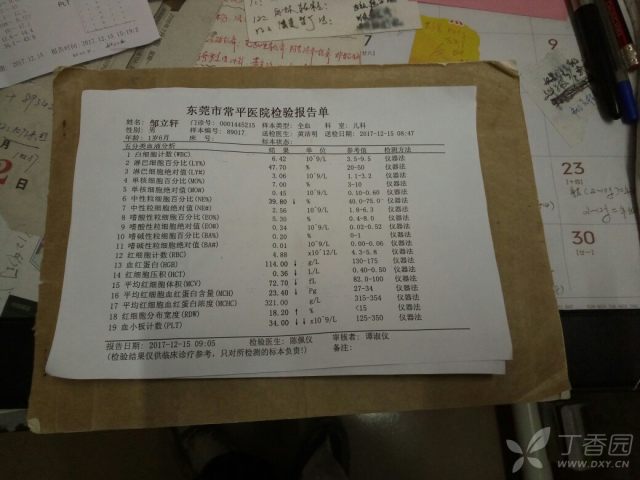 2017.12.15
PLT
7
9
东莞市常平医院检验报告单
姓名: 邹立轩 门诊号: 0001445215 样本类型: 全血 科 室: 儿科
性别: 男 样本编号: 89017 送检医生: 黄洁明 送检日期: 2017-12-15 08:47
年龄: 1岁6月 床 号: 标本状态:
五分类血液分析 结 果 单 位 参考值 检测方法
1 白细胞计数(WBC) 6.42 10^9/L 3.5-9.5 仪器法
2 淋巴细胞百分比(LY%) 47.70 % 20-50 仪器法
3 淋巴细胞绝对值(LY#) 3.06 10^9/L 1.1-3.2 仪器法
4 单核细胞百分比(MON%) 7.00 % 3-10 仪器法
5 单核细胞绝对值(MO#) 0.45 10^9/L 0.10-0.60 仪器法
6 中性粒细胞百分比(NE%) 39.80 ↓ % 40.0-75.0 仪器法
7 中性粒细胞绝对值(NE#) 2.56 10^9/L 1.8-6.3 仪器法
8 嗜酸性粒细胞百分比(EO%) 5.30 % 0.4-8.0 仪器法
9 嗜酸性粒细胞绝对值(EO#) 0.34 10^9/L 0.02-0.52 仪器法
10 嗜碱性粒细胞百分比(BA%) 0.20 % 0-1 仪器法
11 嗜碱性粒细胞绝对值(BA#) 0.01 10^9/L 0.00-0.06 仪器法
12 红细胞计数(RBC) 4.88 x10^12/L 4.3-5.8 仪器法
13 血红蛋白(HGB) 114.00 ↓ g/L 130-175 仪器法
14 红细胞压积(HCT) 0.36 ↓ L/L 0.40-0.50 仪器法
15 平均红细胞体积(MCV) 72.70 ↓ fL 82.0-100 仪器法
16 平均红细胞血红蛋白含量(MCH) 23.40 ↓ Pg 27-34 仪器法
17 平均红细胞血红蛋白浓度(MCHC) 321.00 g/L 315-354 仪器法
18 红细胞分布宽度(RDW) 18.20 ↑ % <15 仪器法
19 血小板计数(PLT) 34.00 ↓↓ x10^9/L 125-350 仪器法
报告日期: 2017-12-15 09:05 检验医生: 陈佩仪 审核者: 谭淑仪
(检验结果仅供临床诊疗参考,只对所检测的标本负责!) 备注:
23
30
丁香园
WWW.DXY.CN